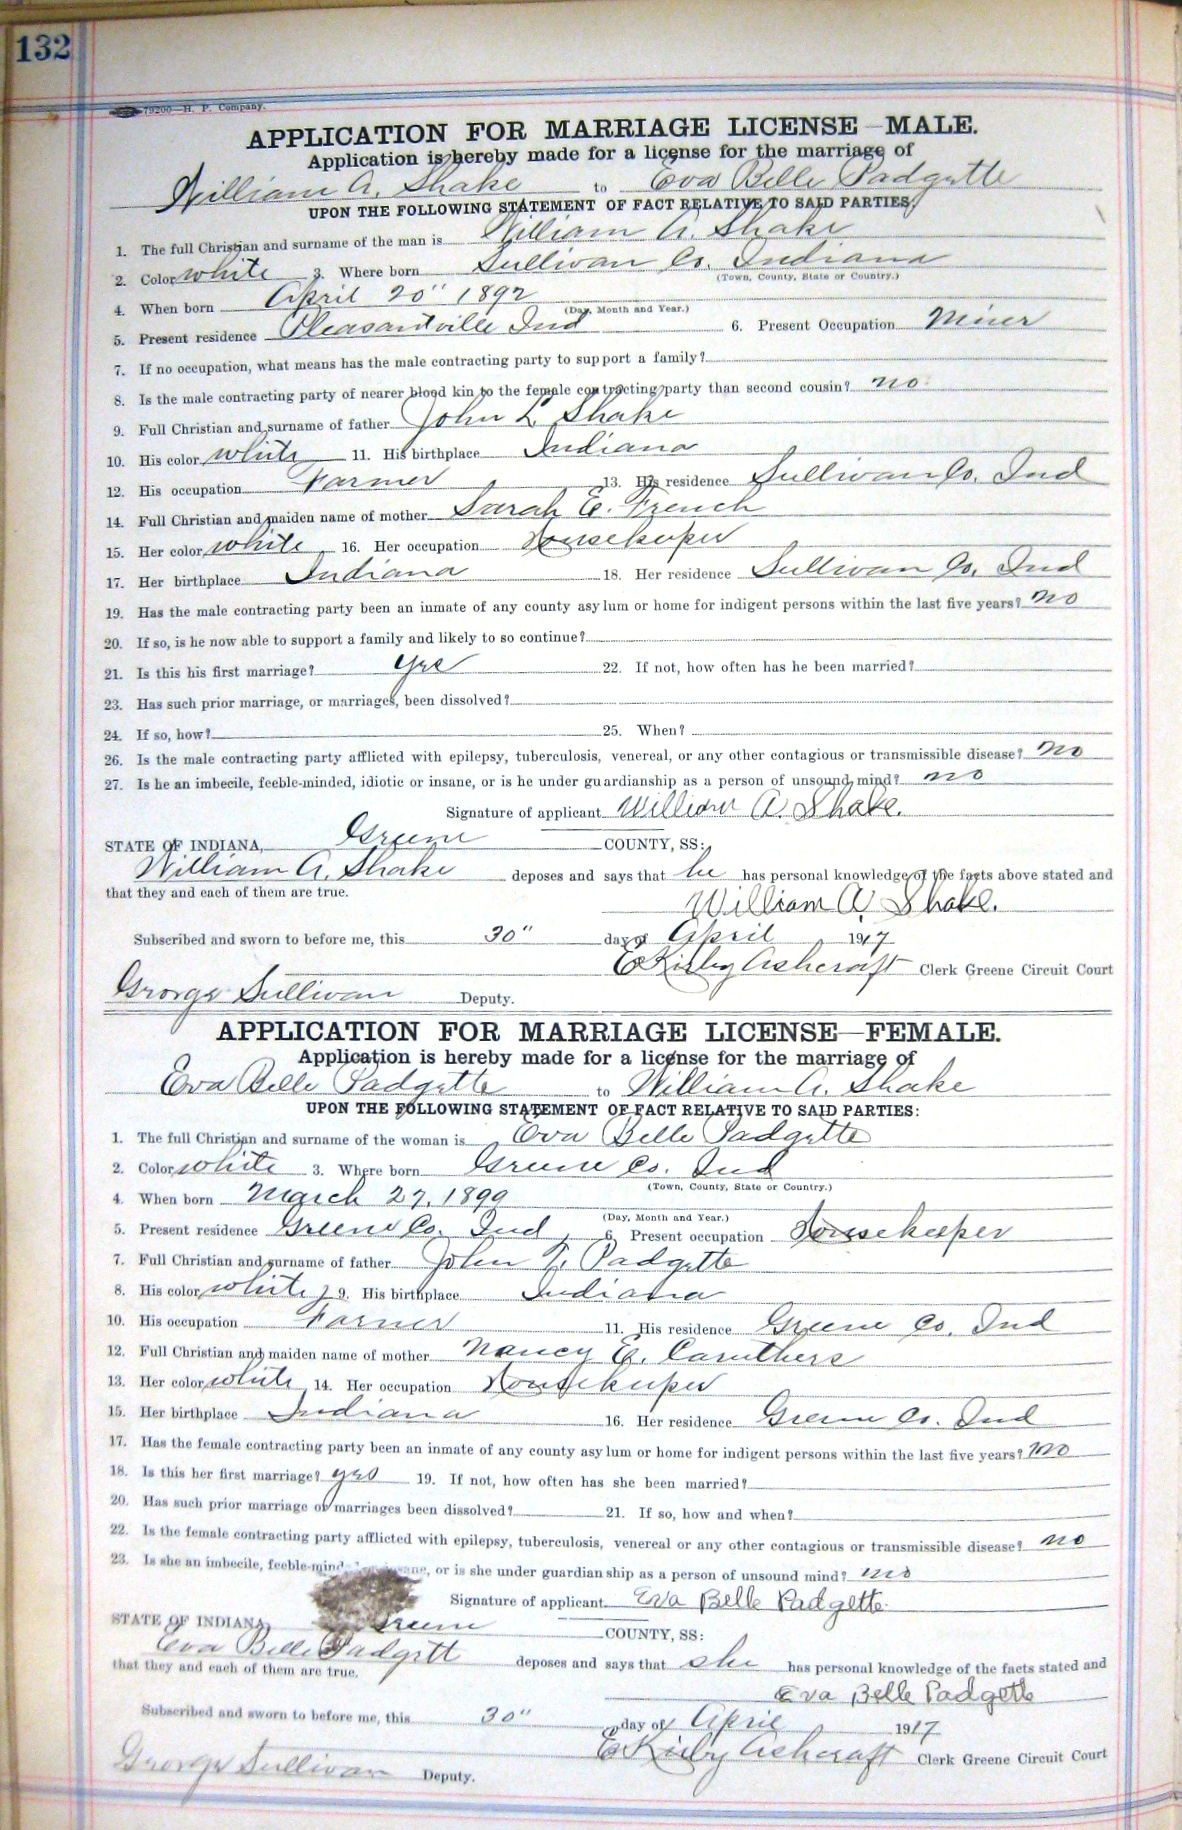 132
79200—H. P. Company.
APPLICATION FOR MARRIAGE LICENSE—MALE.
Application is hereby made for a license for the marriage of
William A. Shake to Eva Belle Padgette
UPON THE FOLLOWING STATEMENT OF FACT RELATIVE TO SAID PARTIES:
1. The full Christian and surname of the man is William A. Shake
2. Color white 3. Where born Sullivan Co. Indiana
(Town, County, State or Country.)
4. When born April 20" 1892 (Day, Month and Year.)
5. Present residence Pleasantville Ind 6. Present Occupation Miner
7. If no occupation, what means has the male contracting party to support a family?
8. Is the male contracting party of nearer blood kin to the female contracting party than second cousin? no
9. Full Christian and surname of father John L Shake
10. His color white 11. His birthplace Indiana
12. His occupation Farmer 13. His residence Sullivan Co. Ind
14. Full Christian and maiden name of mother Sarah E. French
15. Her color white 16. Her occupation Housekeeper
17. Her birthplace Indiana 18. Her residence Sullivan Co. Ind
19. Has the male contracting party been an inmate of any county asylum or home for indigent persons within the last five years? no
20. If so, is he now able to support a family and likely to so continue?
21. Is this his first marriage? yes 22. If not, how often has he been married?
23. Has such prior marriage, or marriages, been dissolved?
24. If so, how? 25. When?
26. Is the male contracting party afflicted with epilepsy, tuberculosis, venereal, or any other contagious or transmissible disease? no
27. Is he an imbecile, feeble-minded, idiotic or insane, or is he under guardianship as a person of unsound mind? no
Signature of applicant William A. Shake.
STATE OF INDIANA, Greene COUNTY, SS:
William A. Shake deposes and says that he has personal knowledge of the facts above stated and
that they and each of them are true.
William A. Shake.
Subscribed and sworn to before me, this 30" day of April 1917
E Kirby Ashcraft Clerk Greene Circuit Court
George Sullivan Deputy.
APPLICATION FOR MARRIAGE LICENSE—FEMALE.
Application is hereby made for a license for the marriage of
Eva Belle Padgette to William A. Shake
UPON THE FOLLOWING STATEMENT OF FACT RELATIVE TO SAID PARTIES:
1. The full Christian and surname of the woman is Eva Belle Padgette
2. Color white 3. Where born Greene Co. Ind
(Town, County, State or Country.)
4. When born March 27, 1899
(Day, Month and Year.)
5. Present residence Greene Co. Ind 6. Present occupation Housekeeper
7. Full Christian and surname of father John T. Padgette
8. His color white 9. His birthplace Indiana
10. His occupation Farmer 11. His residence Greene Co. Ind
12. Full Christian and maiden name of mother Nancy E. Caruthers
13. Her color white 14. Her occupation Housekeeper
15. Her birthplace Indiana 16. Her residence Greene Co. Ind
17. Has the female contracting party been an inmate of any county asylum or home for indigent persons within the last five years? no
18. Is this her first marriage? yes 19. If not, how often has she been married?
20. Has such prior marriage or marriages been dissolved? 21. If so, how and when?
22. Is the female contracting party afflicted with epilepsy, tuberculosis, venereal or any other contagious or transmissible disease? no
23. Is she an imbecile, feeble-mind or is she under guardianship as a person of unsound mind? no
Signature of applicant Eva Belle Padgette
STATE OF INDIANA, Greene COUNTY, SS:
Eva Belle Padgett deposes and says that she has personal knowledge of the facts stated and
that they and each of them are true.
Eva Belle Padgette
Subscribed and sworn to before me, this 30" day of April 1917
E Kirby Ashcraft Clerk Greene Circuit Court
George Sullivan Deputy.